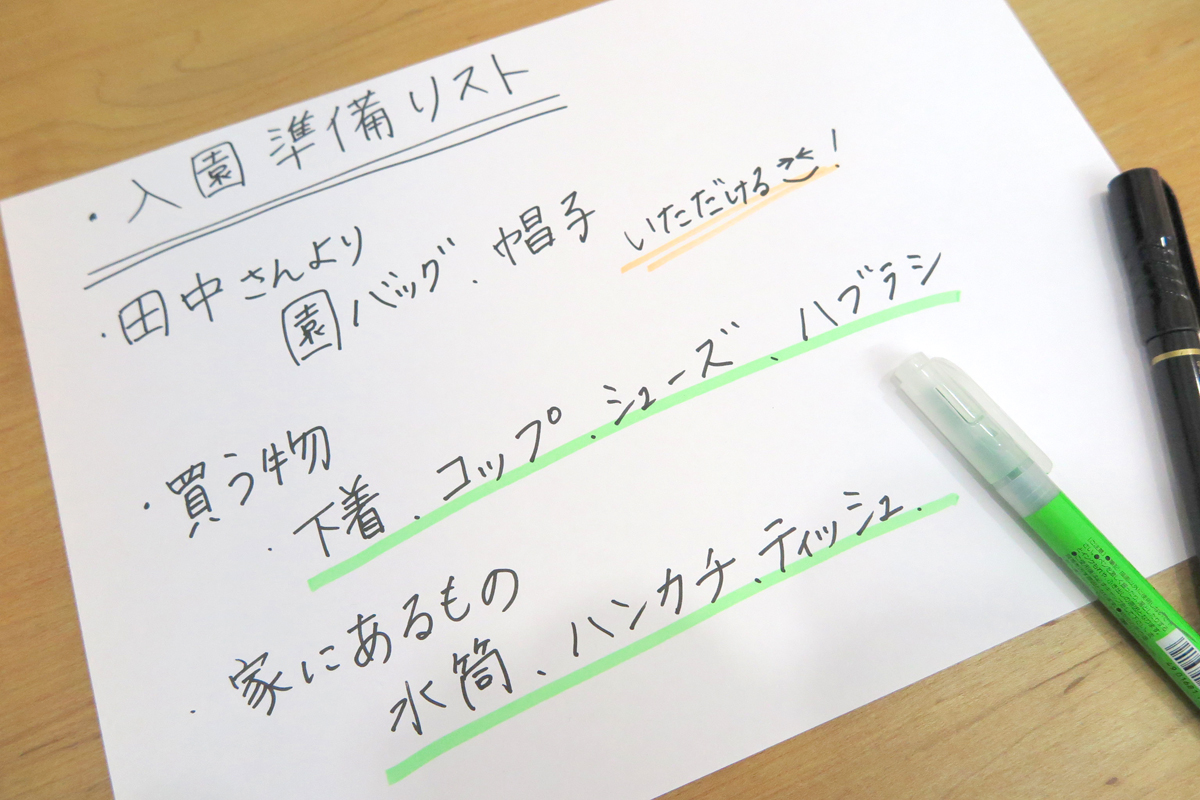 ・入園準備リスト
・田中さんより
園バッグ、帽子 いただける!
・買う物
・下着、コップ、シューズ、ハブラシ
・家にあるもの
水筒、ハンカチ、ティッシュ、